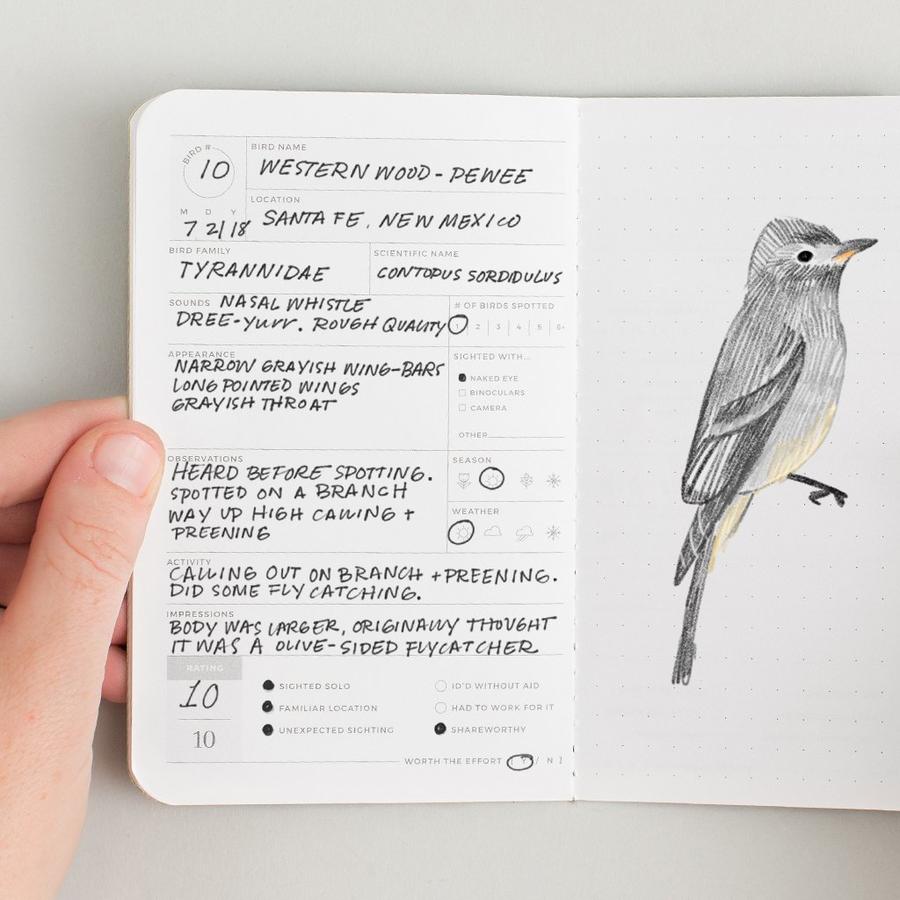 BIRD #
10
BIRD NAME
WESTERN WOOD-PEWEE
M D Y
7 21 18
LOCATION
SANTA FE, NEW MEXICO
BIRD FAMILY
TYRANNIDAE
SCIENTIFIC NAME
CONTOPUS SORDIDULUS
SOUNDS NASAL WHISTLE
DREE-yurr. ROUGH QUALITY
# OF BIRDS SPOTTED
1 2 3 4 5 6+
APPEARANCE
NARROW GRAYISH WING-BARS
LONG POINTED WINGS
GRAYISH THROAT
SIGHTED WITH...
NAKED EYE
BINOCULARS
CAMERA
OTHER
OBSERVATIONS
HEARD BEFORE SPOTTING.
SPOTTED ON A BRANCH
WAY UP HIGH CALLING +
PREENING
SEASON
WEATHER
ACTIVITY
CALLING OUT ON BRANCH + PREENING.
DID SOME FLY CATCHING.
IMPRESSIONS
BODY WAS LARGER, ORIGINALLY THOUGHT
IT WAS A OLIVE-SIDED FLYCATCHER
RATING
10
10
SIGHTED SOLO
FAMILIAR LOCATION
UNEXPECTED SIGHTING
ID'D WITHOUT AID
HAD TO WORK FOR IT
SHAREWORTHY
WORTH THE EFFORT [ Y / N ]